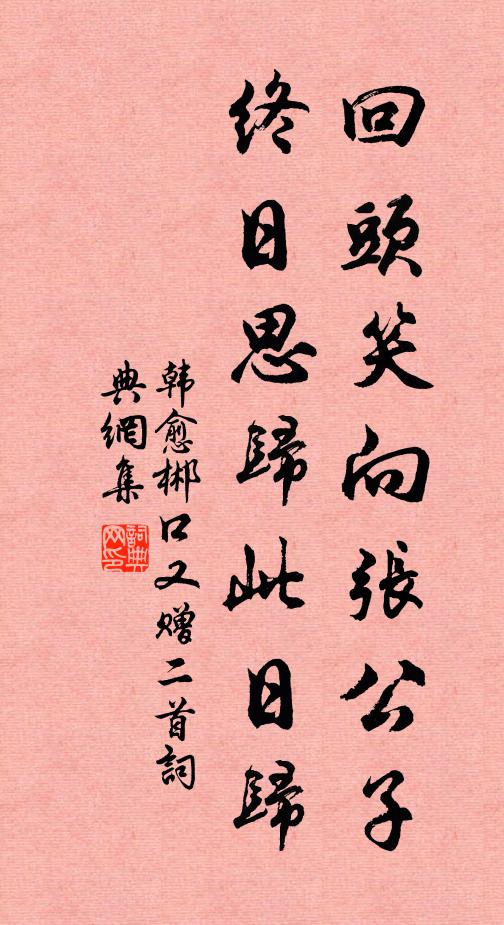 回頭笑向張公子
終日思歸此日歸
韩愈郴口又赠二首詞
典網集
詞典
网印